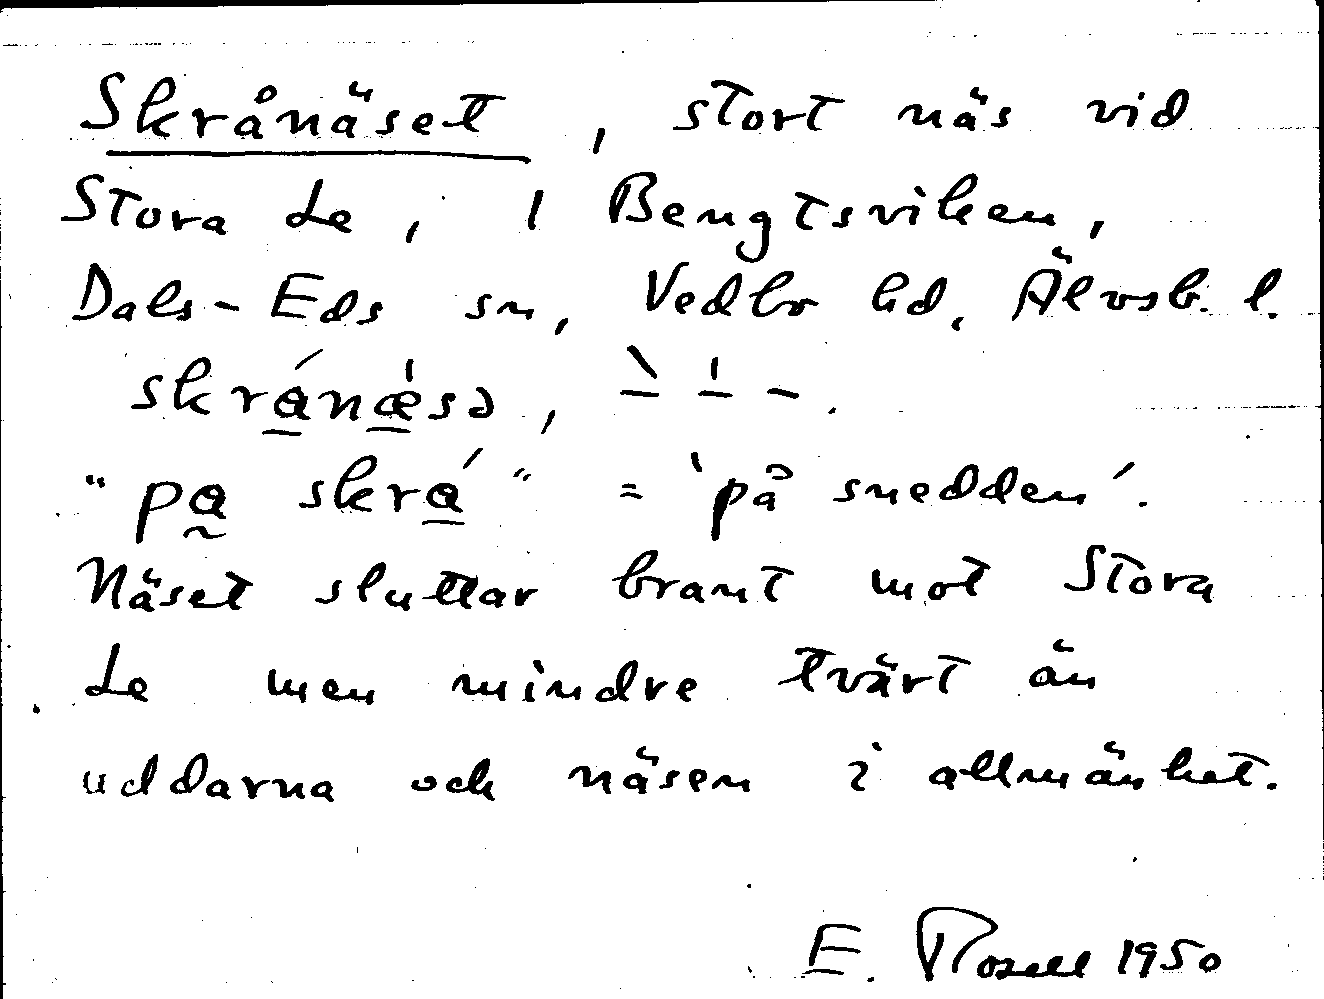 Skrånäset, stort näs vid
Stora Le, i Bengtsviken,
Dals-Eds sn, Vedbo hd, Älvsb. l.
skrána̍sə, `- '- -.
"pa skrá" = 'på snedden'.
Näset sluttar brant mot Stora
Le men mindre tvärt än
uddarna och näsen i allmänhet.
E. Rosell 1950